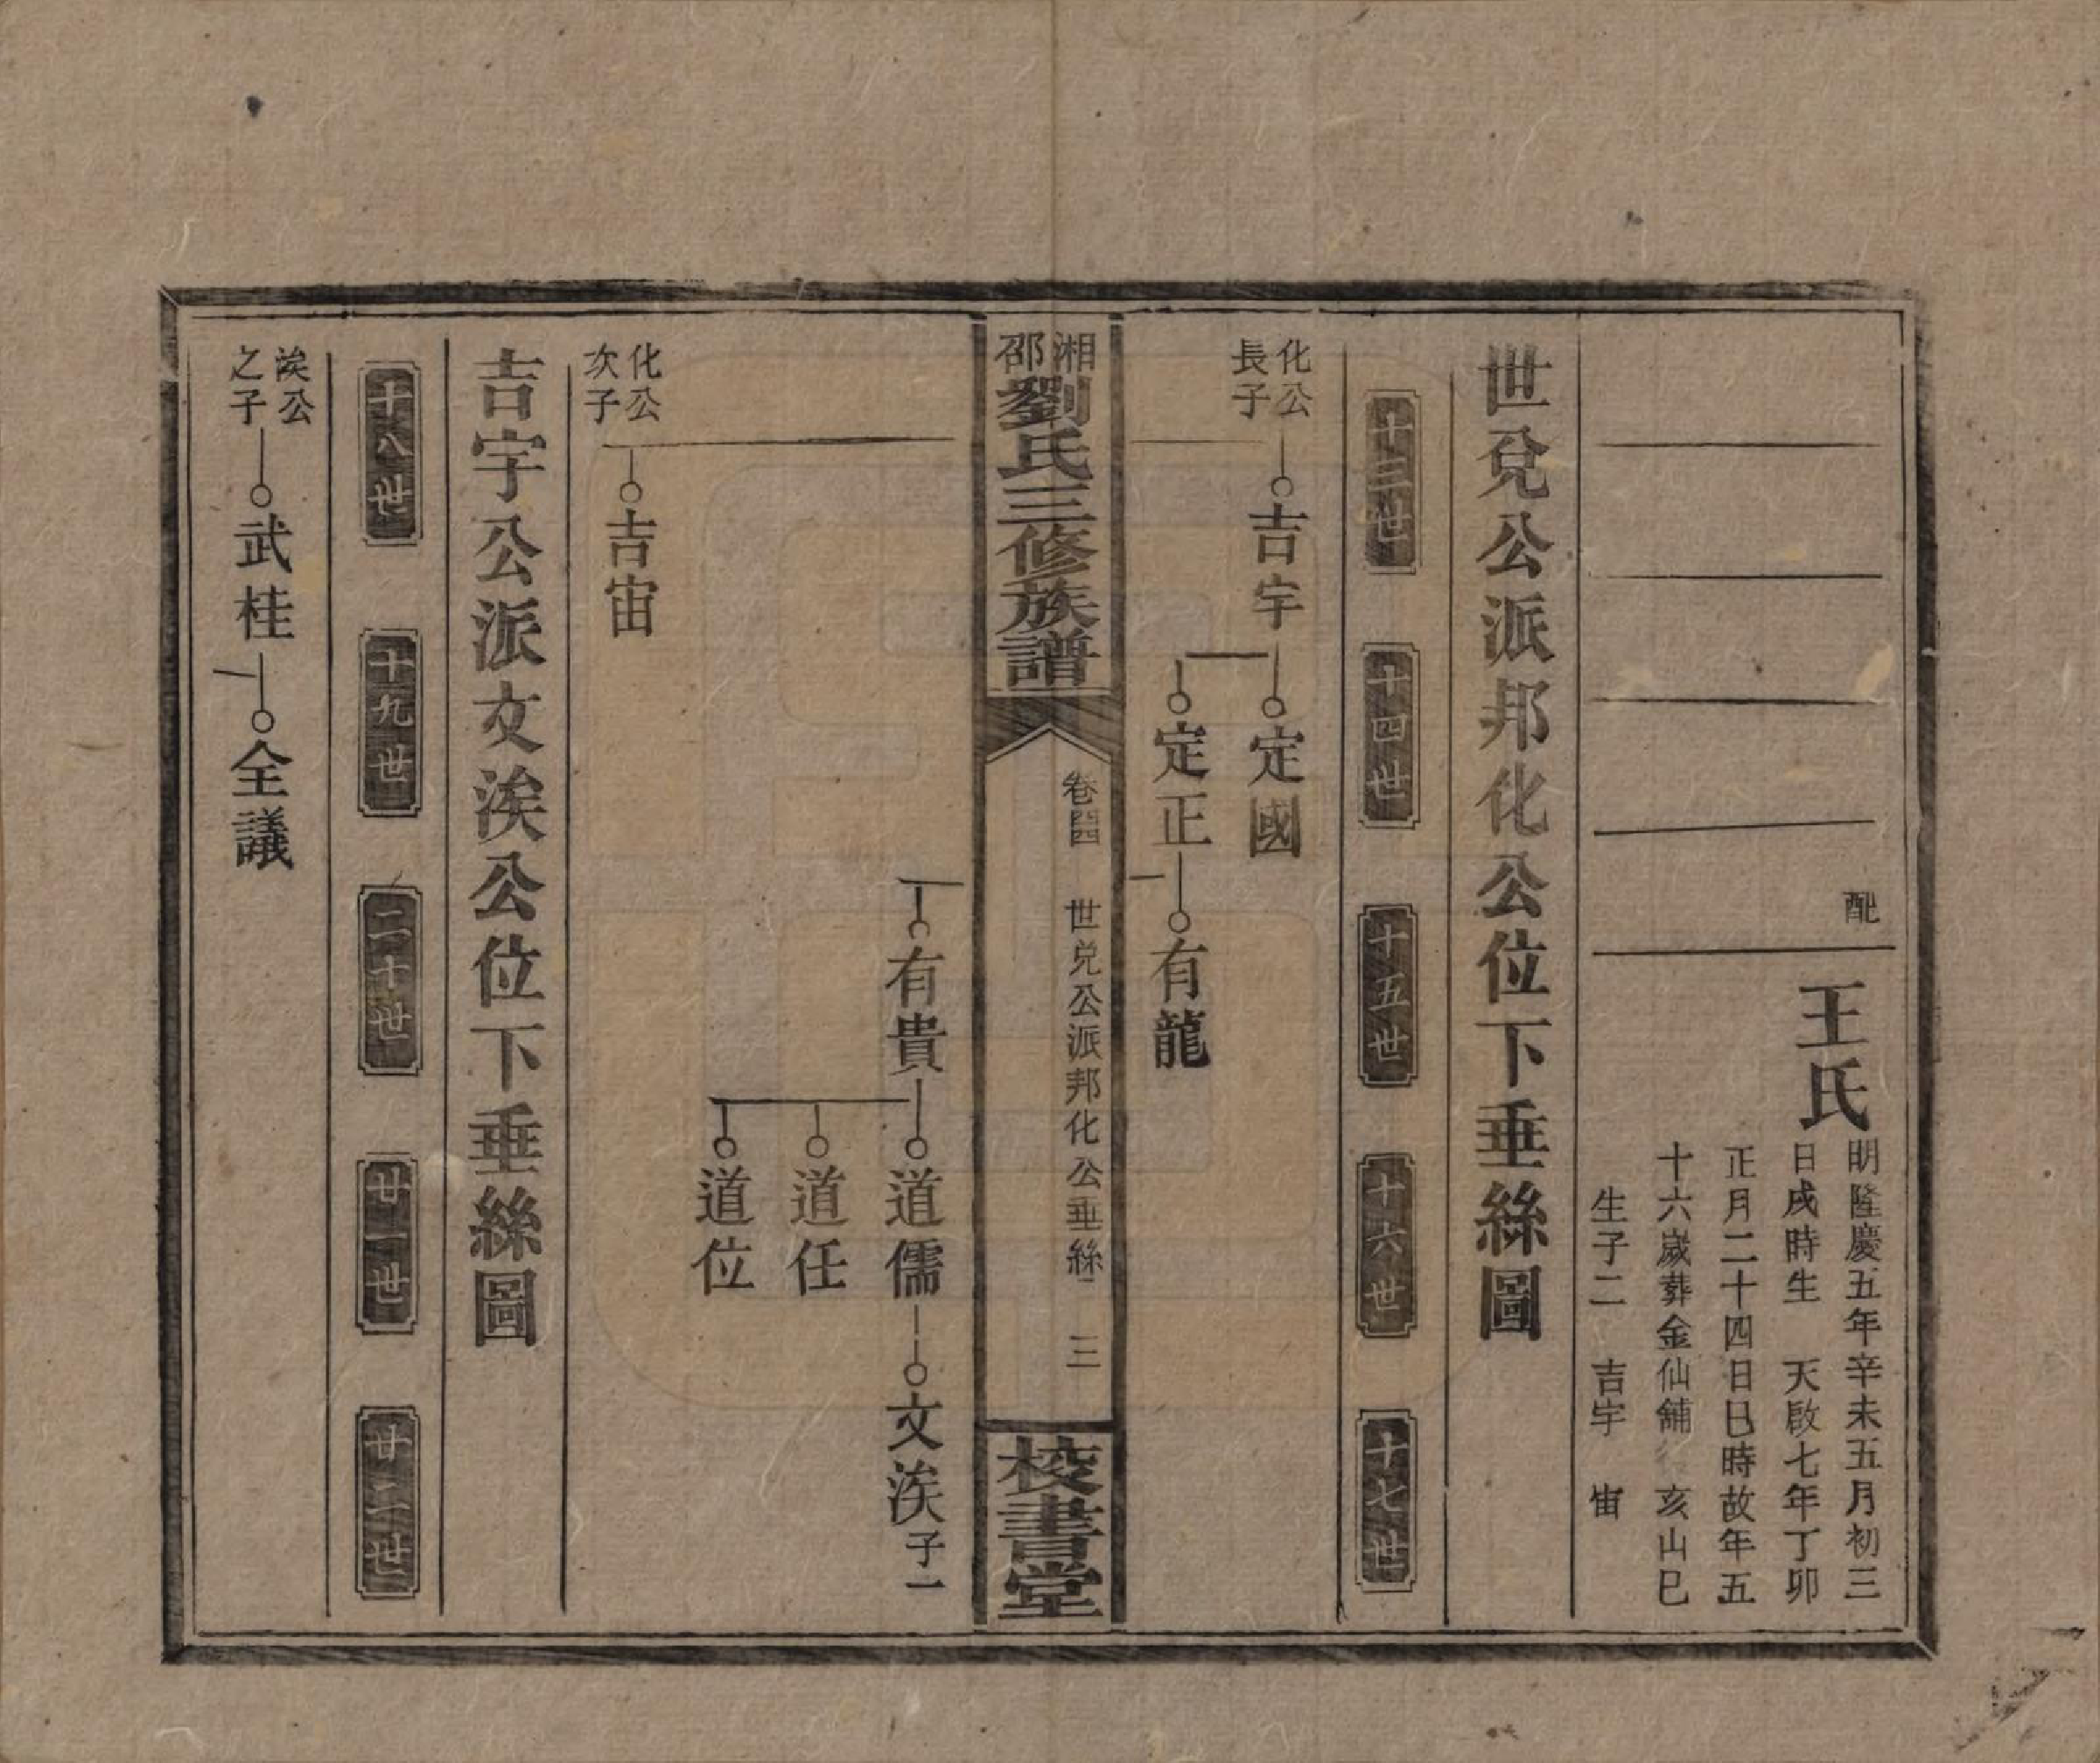 配
王氏
明隆慶五年辛未五月初三
日戌時生　天啟七年丁卯
正月二十四日巳時故年五
十六歲葬金仙舖　亥山巳
生子二　吉宇　宙
世兌公派邦化公位下垂絲圖
十三世　十四世　十五世　十六世　十七世
化公
長子
吉宇
定國
定正
有龍
湘
邵
劉氏三修族譜
卷四　世兌公派邦化公垂絲　三
校書堂
有貴
道儒
文涘
子一
道任
道位
化公
次子
吉宙
吉宇公派文涘公位下垂絲圖
十八世　十九世　二十世　廿一世　廿二世
涘公
之子
武桂
全議